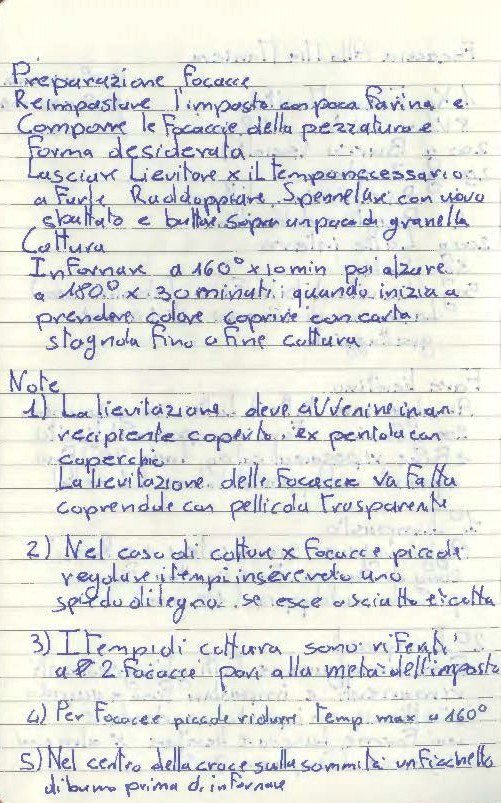 Preparazione Focacce
Reimpastare l'impasto con poca Farina e
Comporre le Focaccie della pezzatura e
Forma desiderata
Lasciare Lievitare x il tempo necessario
a Farle Raddoppiare, Spennellare con uovo
sbattuto e buttare sopra un poco di granella
Cottura
Infornare a 160° x 10 min poi alzare
a 180° x 30 minuti, quando inizia a
prendere colore coprire con carta
stagnola fino a fine cottura
Note
1) La lievitazione deve avvenire in un
recipiente coperto, ex pentola con
coperchio
La lievitazione delle Focaccie va Fatta
coprendole con pellicola trasparente
2) Nel caso di cotture x Focacce piccole
regolare i tempi inserendo uno
spiedo di legno se esce asciutto è cotta
3) I tempi di cottura sono riferiti
a 2 Focacce pari alla metà dell'impasto
4) Per Focacce piccole ridurre Temp. max a 160°
5) Nel centro della croce sulla sommità un Fiocchetto
di burro prima di infornare